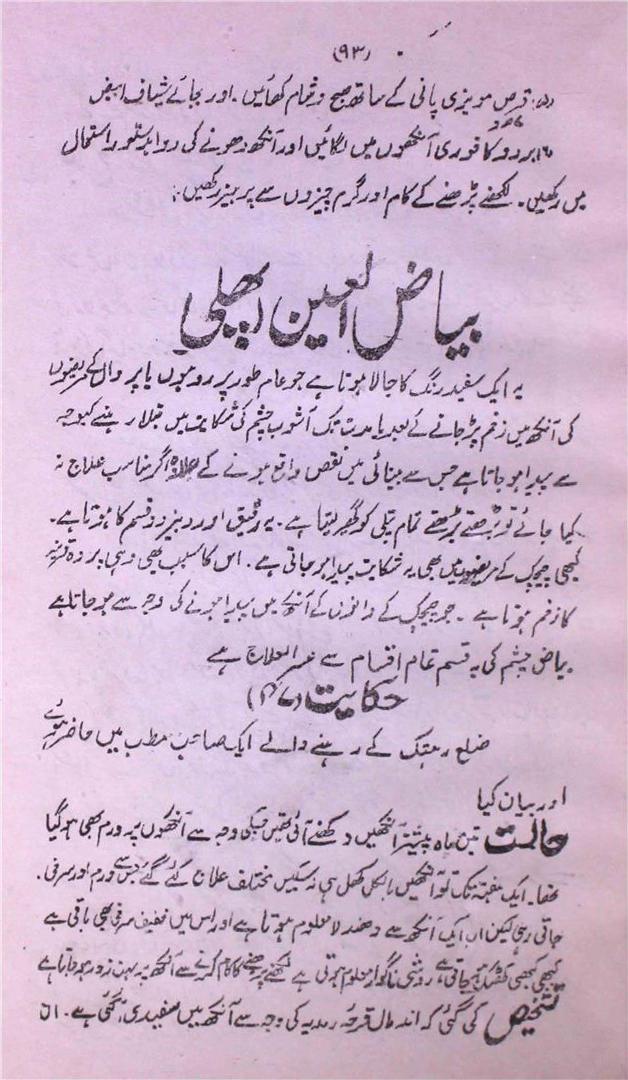 (۹۳)
(۵) قرص مویزی پانی کے ساتھ صبح و شام کھائیں۔ اور بجائے شیاف ابیض
برود کافوری آنکھوں میں لگائیں اور آنکھ دھونے کی دوا بدستور استعمال
میں رکھیں۔ لکھنے پڑھنے کے کام اور گرم چیزوں سے پرہیز رکھیں:
بیاض العین (پھلی)
یہ ایک سفید رنگ کا جالا ہوتا ہے جو عام طور پر روہوں یا پروال کے مریضوں
کی آنکھ میں زخم پڑ جانے کے بعد یا مدت تک آشوب چشم کی شکایت میں مبتلا رہنے کیوجہ
سے پیدا ہو جاتا ہے جس سے بینائی میں نقص واقع ہونے کے علاوہ اگر مناسب علاج نہ
کیا جائے تو بڑھتے بڑھتے تمام پتلی کو گھیر لیتا ہے۔ یہ رقیق اور دبیز دو قسم کا ہوتا ہے۔
کبھی چیچک کے مریضوں میں بھی یہ شکایت پیدا ہو جاتی ہے۔ اس کا سبب بھی وہی پردہ قرنیہ
کا زخم ہوتا ہے۔ جو چیچک کے دانوں کے آنکھ میں پیدا ہونے کی وجہ سے ہو جاتا ہے
بیاض چشم کی یہ قسم تمام اقسام سے عسر العلاج ہے
حکایت
ضلع رہتک کے رہنے والے ایک صاحب مطب میں حاضر ہوئے
اور بیان کیا
حالت تین ماہ پیشتر آنکھیں دکھنے آئی تھیں جسکی وجہ سے آنکھوں پر ورم بھی ہو گیا
تھا۔ ایک ہفتہ تک تو آنکھیں بالکل کھل ہی نہ سکیں مختلف علاج کئے گئے جس سے ورم اور سرخی۔
جاتی رہی لیکن اب ایک آنکھ سے دھندلا معلوم ہوتا ہے اور اس میں خفیف سرخی بھی باقی ہے
کبھی کبھی کھٹک ہو جاتی ہے، روشنی ناگوار معلوم ہوتی ہے لکھنے پڑھنے کا کام کرنے سے آنکھ پر بہت زور ہو جاتا ہے
تشخیص کی گئی کہ اندمال قرحہ رمدیہ کی وجہ سے آنکھ میں سفیدی آ گئی ہے۔ اس